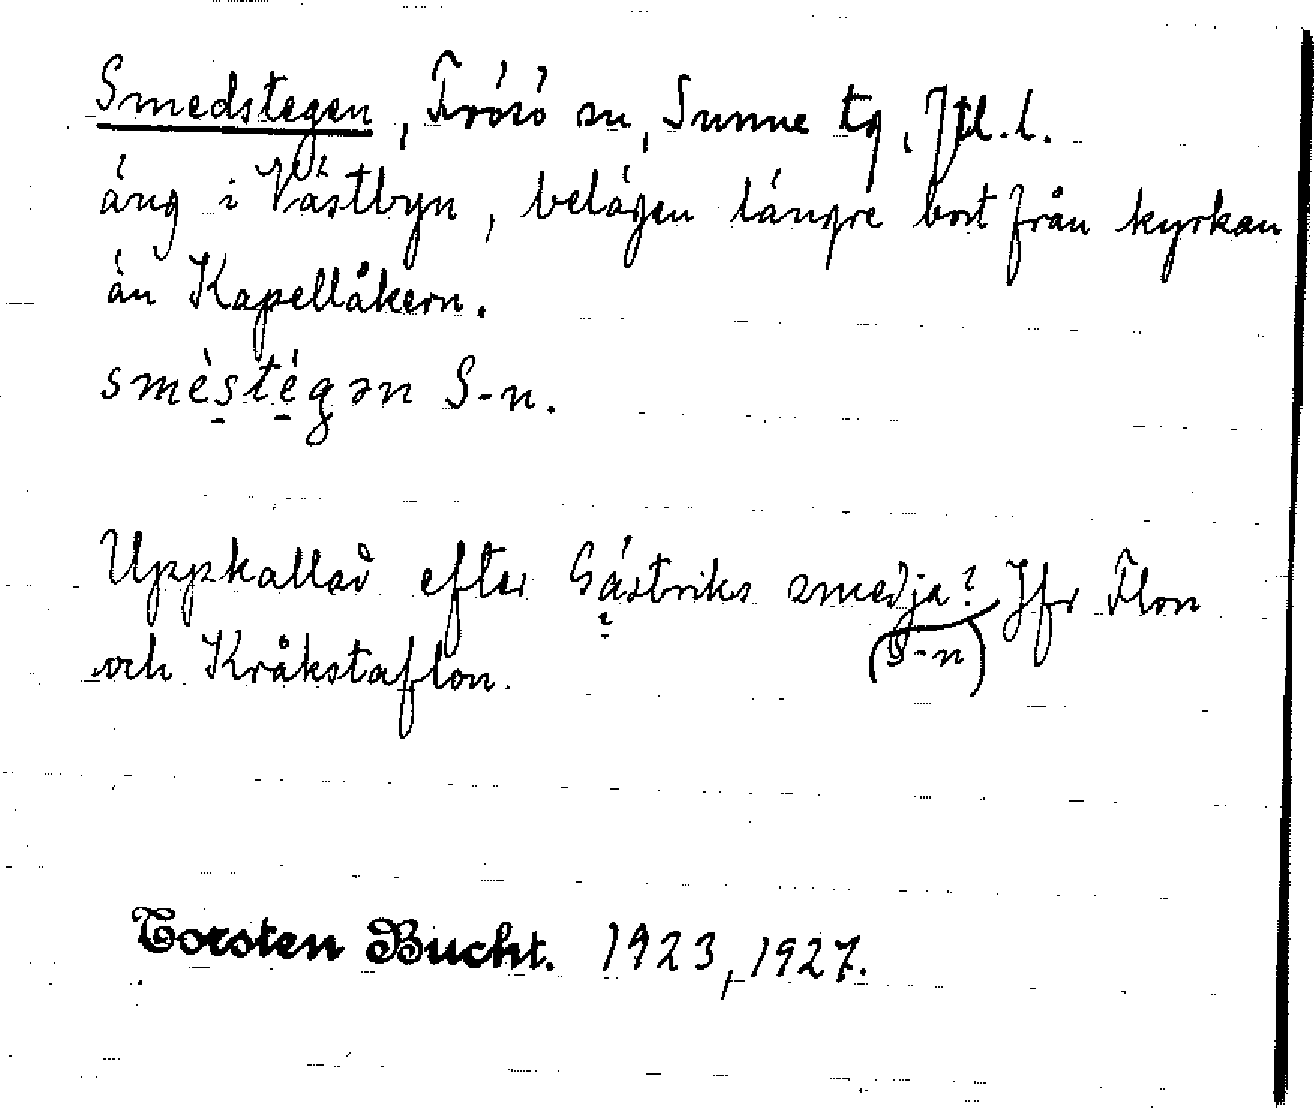 Smedstegen, Frösö sn, Sunne tg, Jtl. l.
äng i Västbyn, belägen längre bort från kyrkan
än Kapellåkern.
sme̍s̠te̠̍gən S-n.
Uppkallad efter Gästriks smedja? Jfr Flon
(S-n)
och Kråkstaflon.
Torsten Bucht. 1923, 1927.